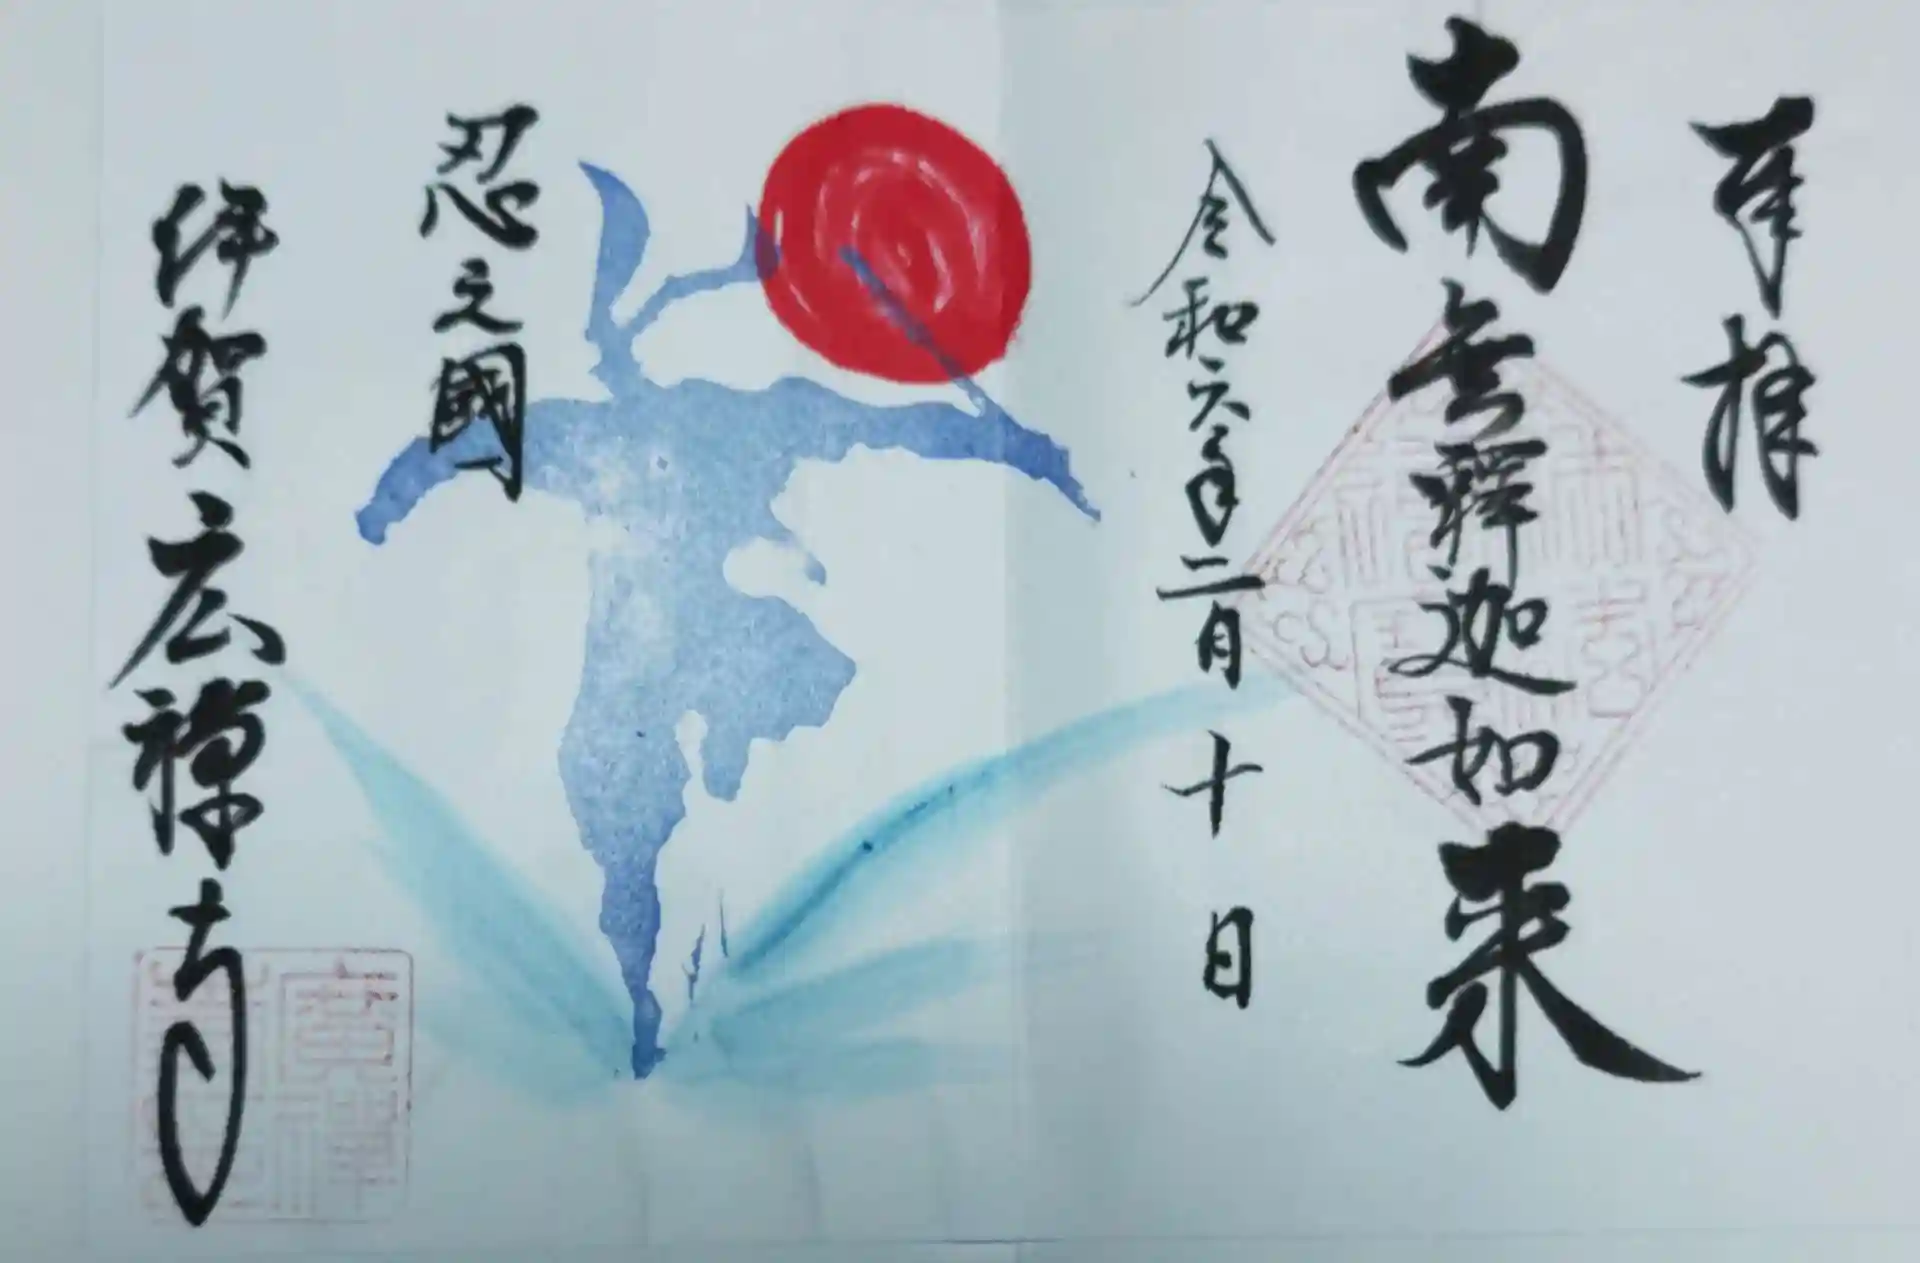 奉拝
南無釋迦如来
令和六年二月十日
忍之國
伊賀 広禅寺